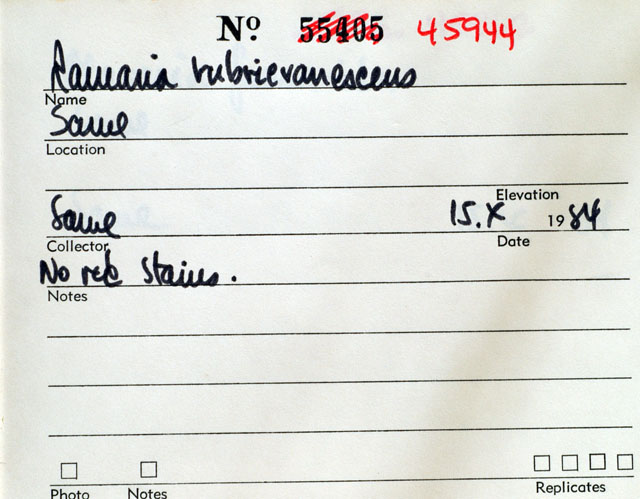 Nº 55405 45944
Ramaria rubrievanescens
Name
Same
Location
Elevation
Same 15.X 1984
Collector Date
No red stains.
Notes
Photo Notes Replicates